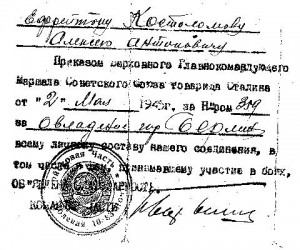 Ефрейтору Костоломову
Алексею Антоновичу
Приказом Верховного Главнокомандующего
Маршала Советского Союза товарища Сталина
от "2" Мая 194 г. за Nром 359
за овладение гор Берлин
всему личному составу нашего соединения, в
том числе и Вам, принимавшему участие в боях,
ОБ"ЯВЛЕНА БЛАГОДАРНОСТЬ.
КОМАНДИР ЧАСТИ